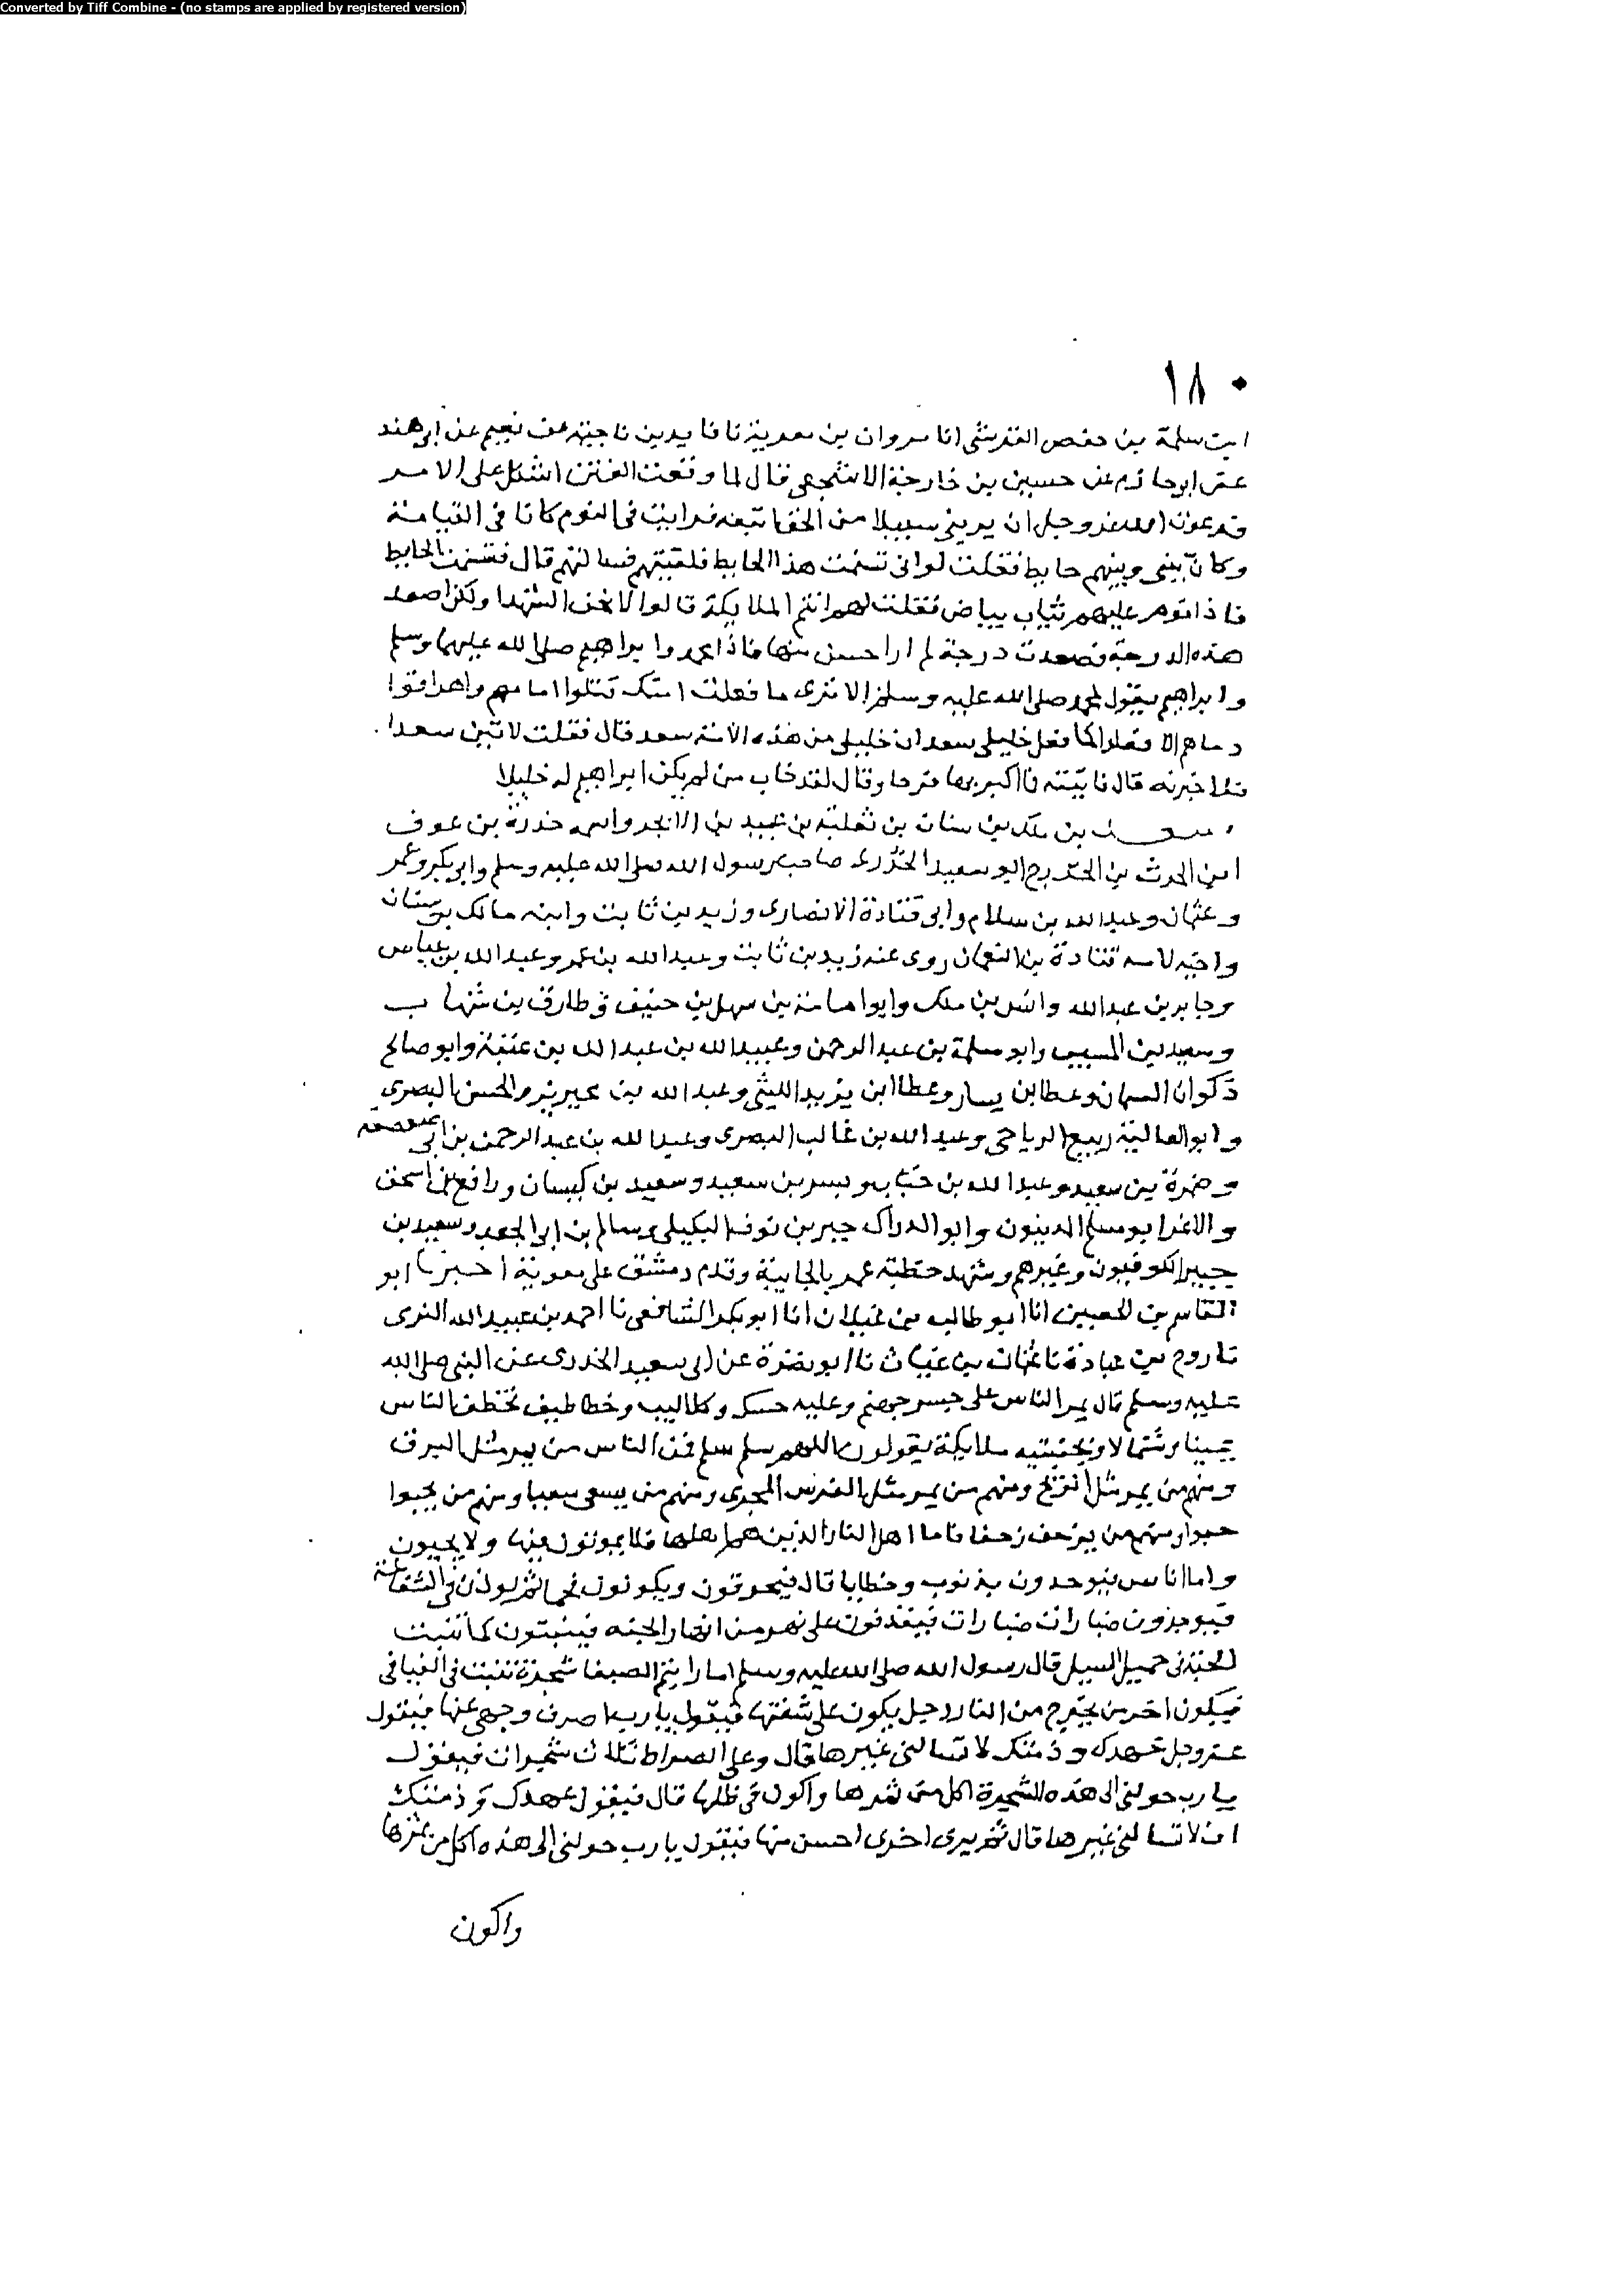 Converted by Tiff Combine - (no stamps are applied by registered version)
١٨٠
ابن سلمة بن حفص القرشي انا مروان بن معوية نا فايد بن ناجية عن نعيم عن ابي هند
عن ابي حازم عن حسين بن خارجة الاشجعي قال لما وقعت الفتن اشكل علي الامر
فدعوت الله عز وجل ان يريني سبيلا من الحق اتبعه فرايت في النوم كانا في القيامة
وكان بيني وبينهم حايط فقلت لو اني تسنمت هذا الحايط فلقيتهم فسالتهم قال فتسنمت الحايط
فاذا قوم عليهم ثياب بياض فقلت لهم انتم الملايكة قالوا لا نحن الشهدا ولكن اصعد
هذه الدرجة فصعدت درجة لم ار احسن منها فاذا محمد وابراهيم صلى الله عليهما وسلم
وابراهيم يقول لمحمد صلى الله عليه وسلم الا ترى ما فعلت امتك قتلوا امامهم واهراقوا
دماهم الا فعلوا كما فعل خليلي سعد ان خليلي من هذه الامة سعد قال فقلت لاتين سعدا
فلاخبرنه قال فاتيته فما اكبر بها فرحا وقال لقد خاب من لم يكن ابراهيم له خليلا
سعد بن ملك بن سنان بن ثعلبة بن عبيد بن الابجر واسمه خدرة بن عوف
ابن الحرث بن الخزرج ابو سعيد الخدري صاحب رسول الله صلى الله عليه وسلم وابي بكر وعمر
وعثمان وعبد الله بن سلام وابي قتادة الانصاري وزيد بن ثابت وابيه مالك بن سنان
واخيه لامه قتادة بن النعمان روى عنه زيد بن ثابت وعبد الله بن عمر وعبد الله بن عباس
وجابر بن عبد الله وانس بن ملك وابو امامة بن سهل بن حنيف وطارق بن شهاب
وسعيد بن المسيب وابو سلمة بن عبد الرحمن وعبيد الله بن عبد الله بن عتبة وابو صالح
ذكوان السمان وعطا بن يسار وعطا ابن يزيد الليثي وعبد الله بن محيريز والحسن البصري
وابو العالية ربيع الرياحي وعبد الله بن غالب البصري وعبد الله بن عبد الرحمن بن ابي صعصعة
وضمرة بن سعيد وعبد الله بن خباب وبسر بن سعيد وسعيد بن كيسان ورافع بن اسحق
والاغر ابو مسلم المدينون وابو الوداك جبر بن نوف البكيلي وسالم بن ابي الجعد وسعيد بن
جبير الكوفيون وغيرهم وشهد خطبة عمر بالجابية وقدم دمشق على معوية اخبرنا ابو
القاسم بن الحصين انا ابو طالب بن غيلان انا ابو بكر الشافعي نا احمد بن عبيد الله النرسي
نا روح بن عبادة نا عثمان بن غياث نا ابو نضرة عن ابي سعيد الخدري عن النبي صلى الله
عليه وسلم قال يمر الناس على جسر جهنم وعليه حسك وكلاليب وخطاطيف تخطف الناس
يمينا وشمالا وبجنبتيه ملايكة يقولون اللهم سلم سلم فمن الناس من يمر مثل البرق
ومنهم من يمر مثل الريح ومنهم من يمر مثل الفرس المجري ومنهم من يسعى سعيا ومنهم من يحبوا
حبوا ومنهم من يزحف زحفا فاما اهل النار الذين هم اهلها فلا يموتون فيها ولا يحيون
واما ناس فيوخذون بذنوب وخطايا قال فيحرقون ويكونون فحما ثم يوذن في الشفاعة
فيوخذون ضبارات ضبارات فيقذفون على نهر من انهار الجنة فينبتون كما تنبت
الحبة في حميل السيل قال رسول الله صلى الله عليه وسلم اما رايتم الصبغا شجرة تنبت في الفيافي
فيكون اخر من يخرج من النار رجل يكون على شفتها فيقول يا رب اصرف وجهي عنها فيقول
عز وجل عهدك وذمتك لا تسالني غيرها قال وعلى الصراط ثلاث شجرات فيقول
يا رب حولني الى هذه الشجرة اكل من ثمرها واكون في ظلها قال فيقول عهدك وذمتك
ان لا تسالني غيرها قال ثم يرى اخرى احسن منها فيقول يا رب حولني الى هذه اكل من ثمرها
واكون